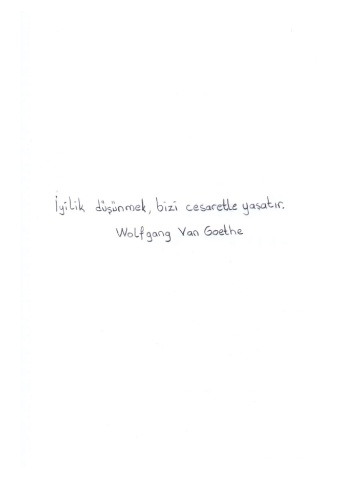 İyilik düşünmek, bizi cesaretle yaşatır.
Wolfgang Van Goethe